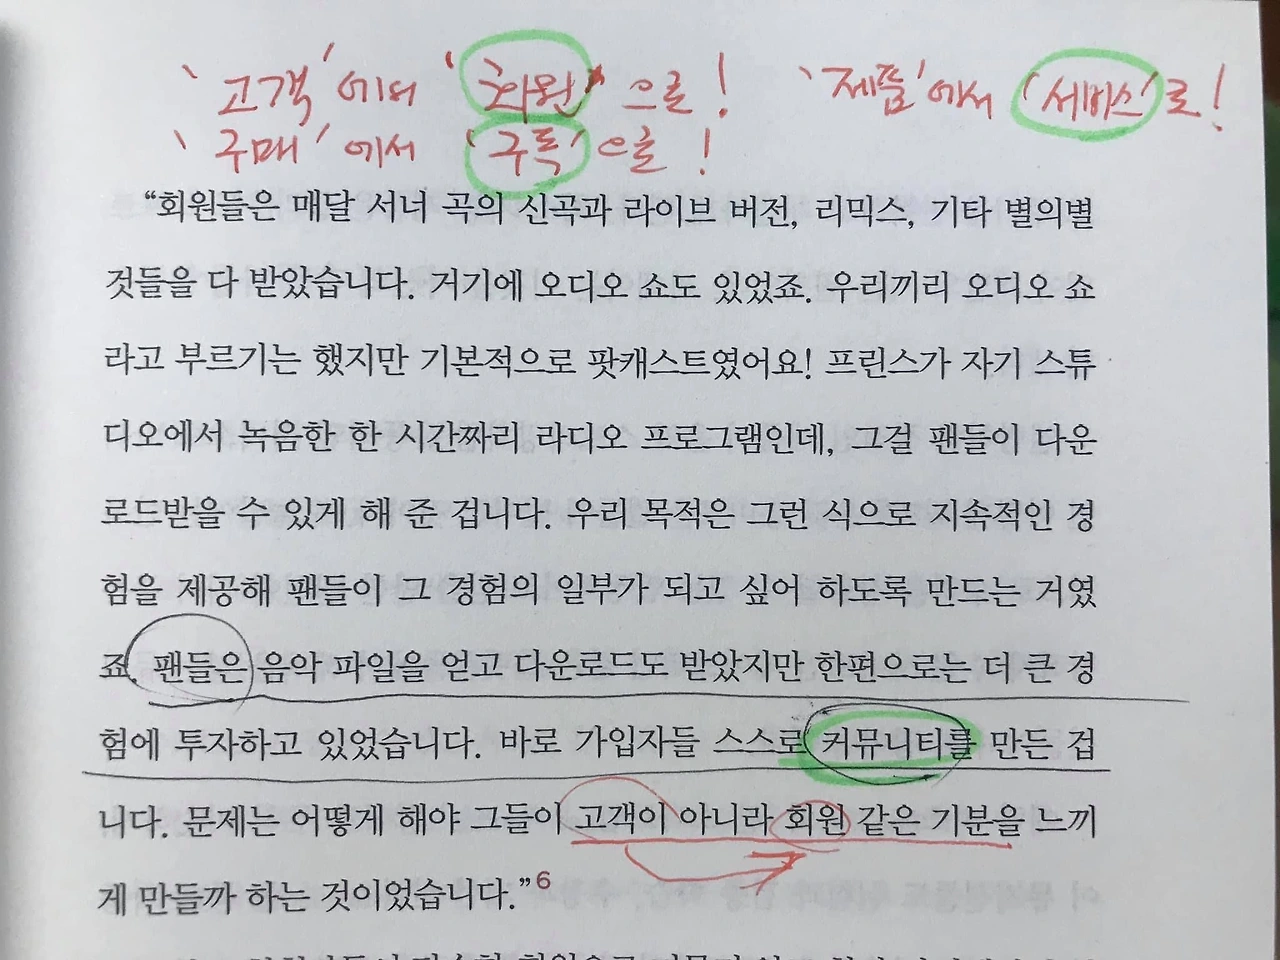 '고객'에서 '회원'으로! '제품'에서 '서비스'로!
'구매'에서 '구독'으로!
“회원들은 매달 서너 곡의 신곡과 라이브 버전, 리믹스, 기타 별의별
것들을 다 받았습니다. 거기에 오디오 쇼도 있었죠. 우리끼리 오디오 쇼
라고 부르기는 했지만 기본적으로 팟캐스트였어요! 프린스가 자기 스튜
디오에서 녹음한 한 시간짜리 라디오 프로그램인데, 그걸 팬들이 다운
로드받을 수 있게 해 준 겁니다. 우리 목적은 그런 식으로 지속적인 경
험을 제공해 팬들이 그 경험의 일부가 되고 싶어 하도록 만드는 거였
죠. 팬들은 음악 파일을 얻고 다운로드도 받았지만 한편으로는 더 큰 경
험에 투자하고 있었습니다. 바로 가입자들 스스로 커뮤니티를 만든 겁
니다. 문제는 어떻게 해야 그들이 고객이 아니라 회원 같은 기분을 느끼
게 만들까 하는 것이었습니다.”6